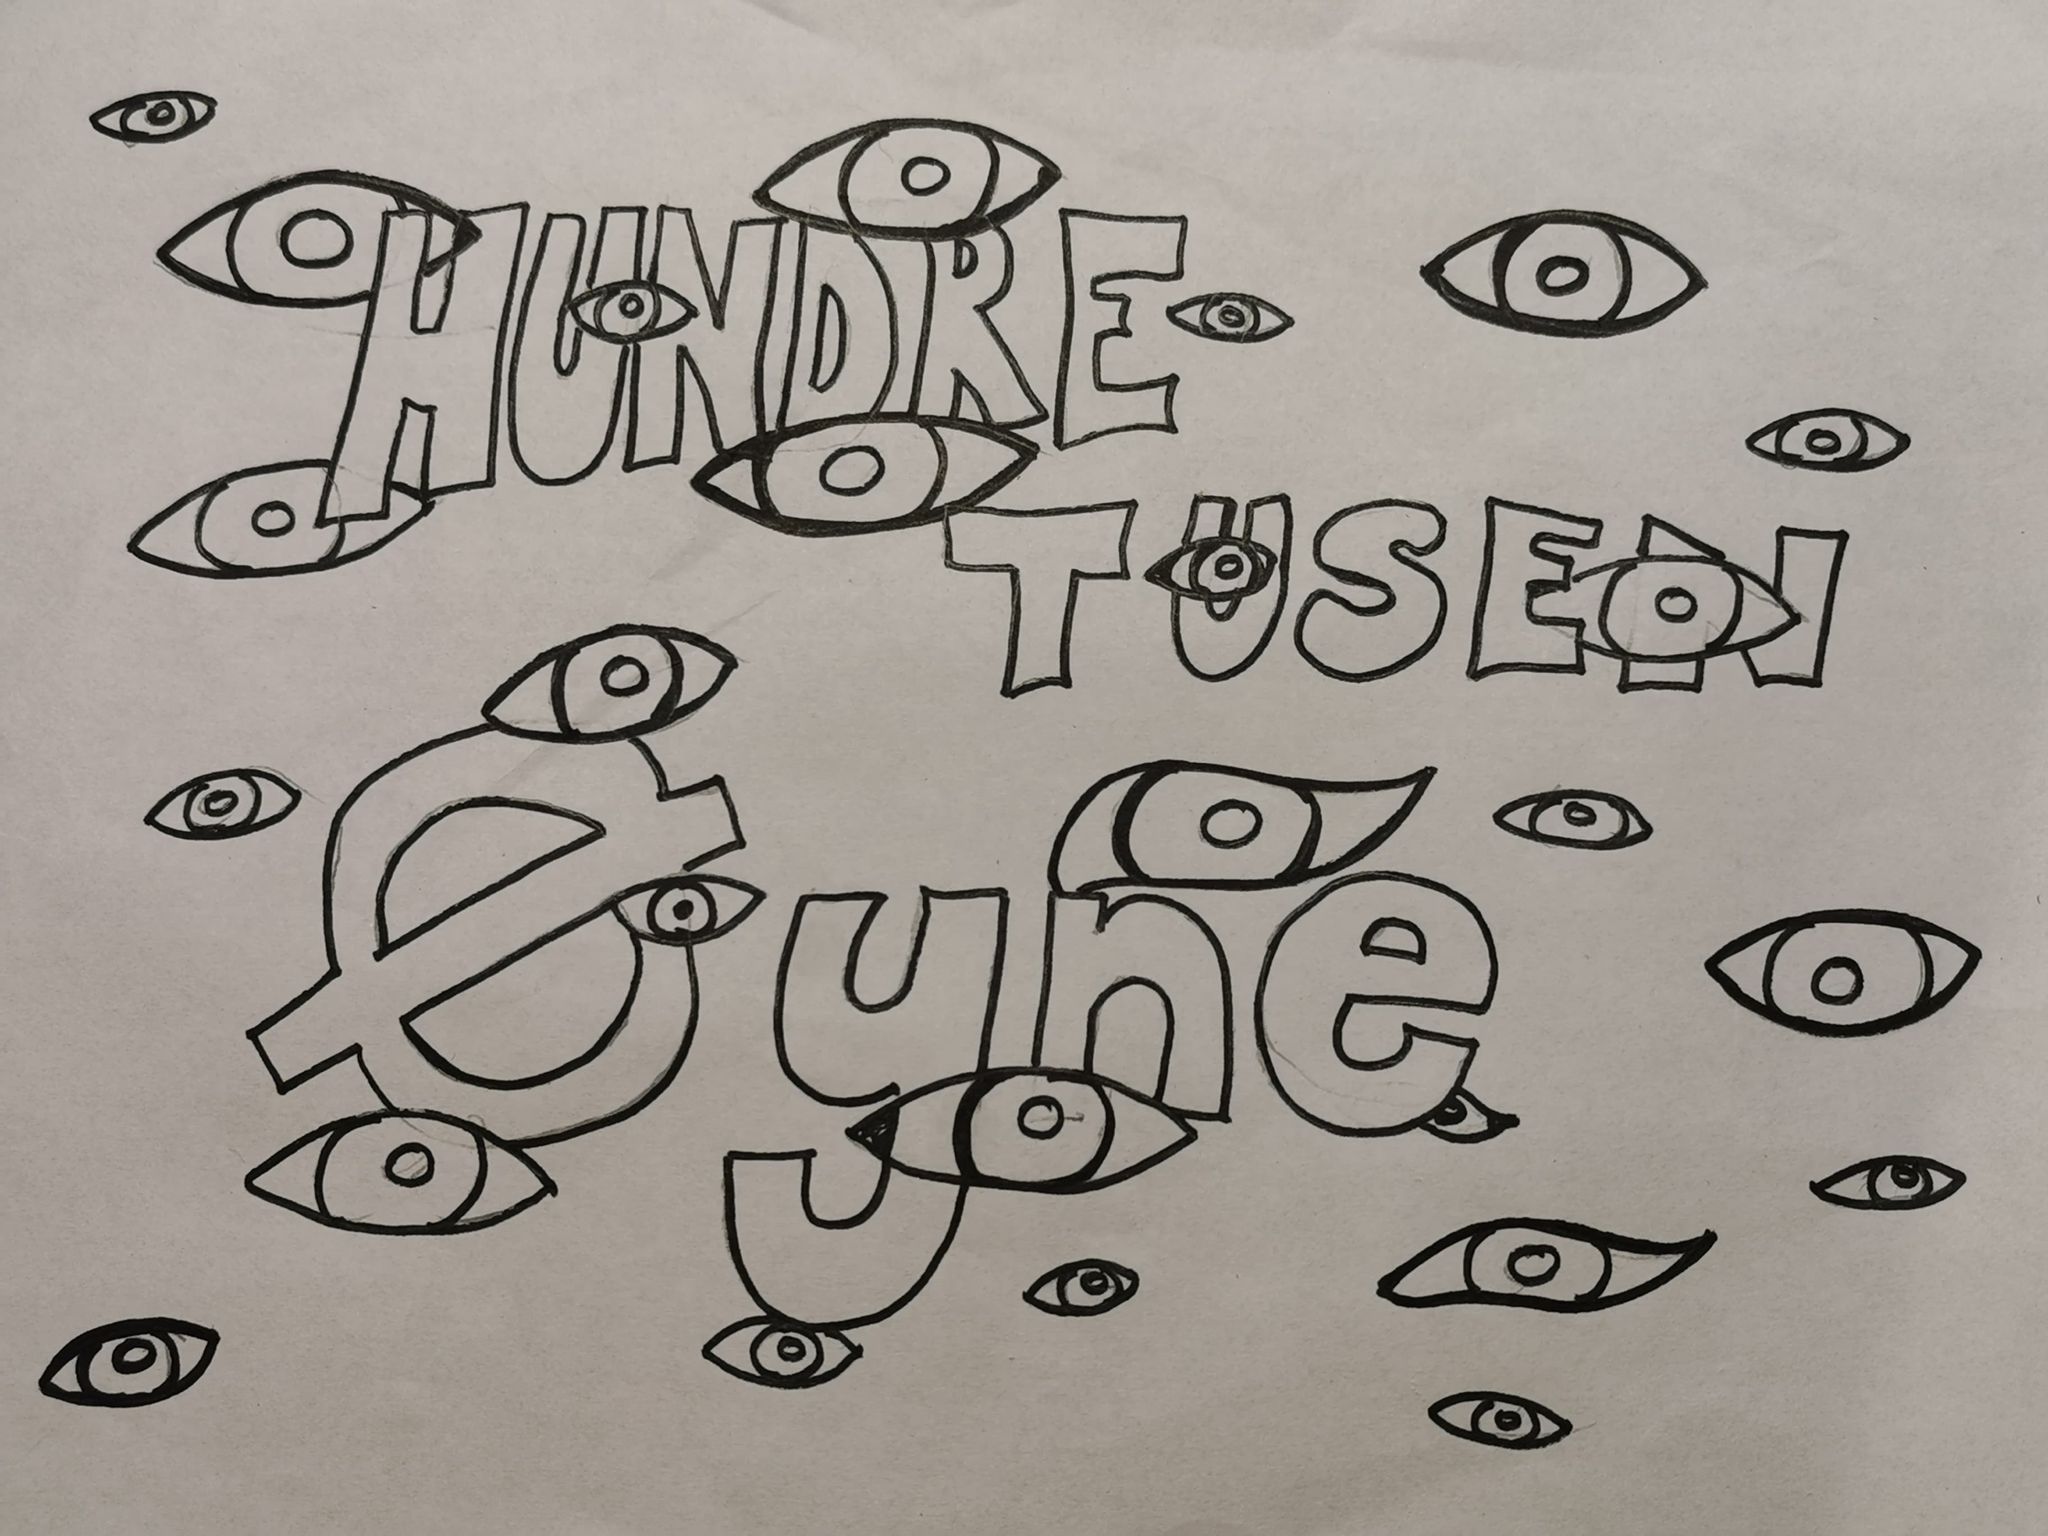 HUNDRE
TUSEN
Øyne